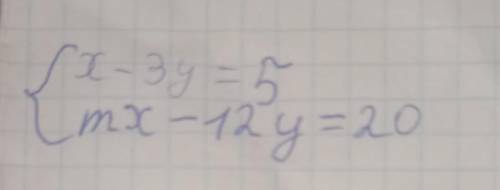 x - 3y = 5
mx - 12y = 20